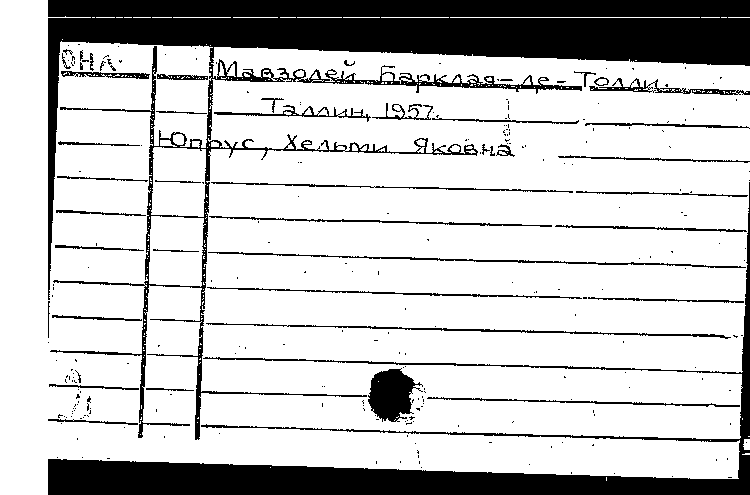 ОНЛ. Мавзолей Барклая-де-Толли.
Таллин, 1957.
Юпрус, Хельми Яковна